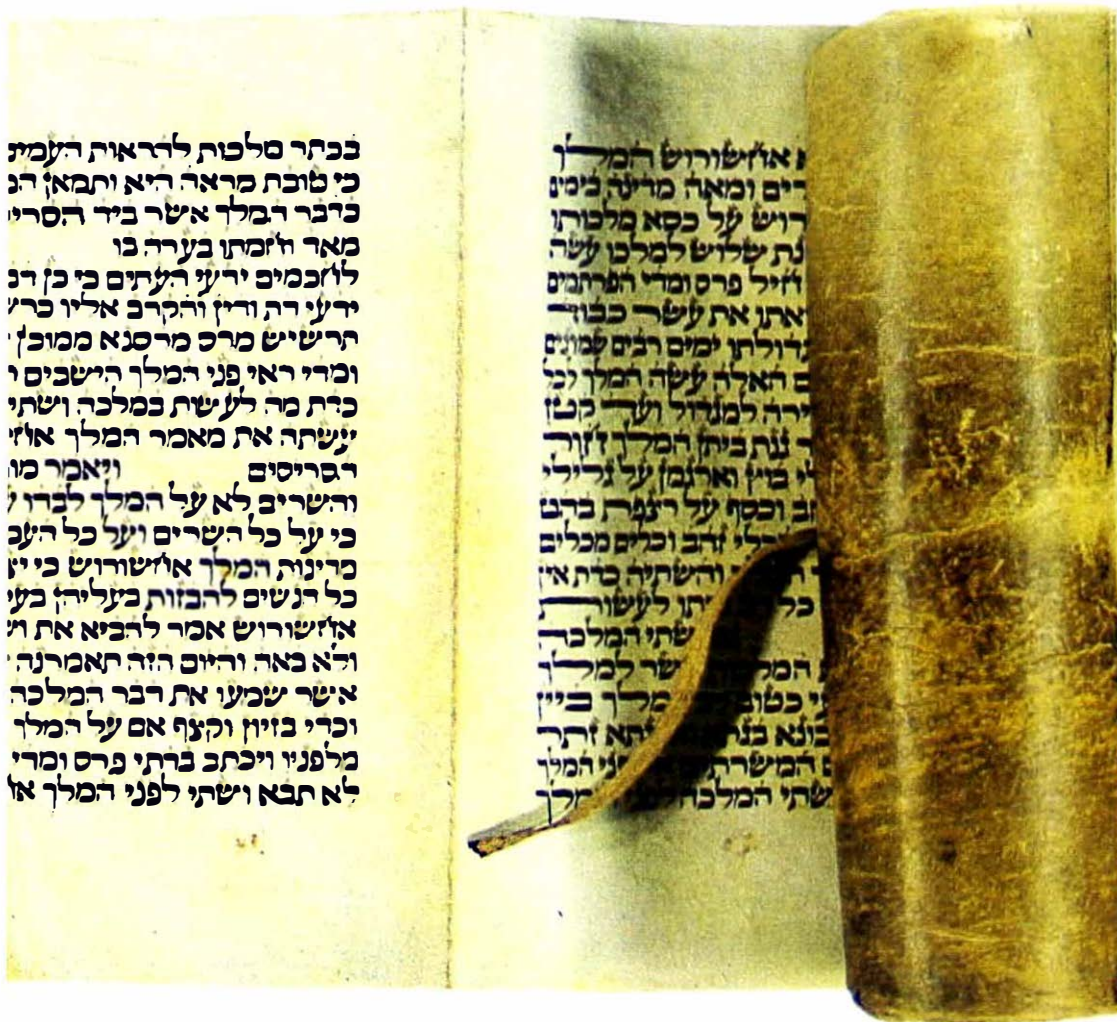 א אחשורוש המלך
רים ומאה מדינה בימים
רוש על כסא מלכותו
נת שלוש למלכו עשה
חיל פרס ומדי הפרתמים
אתו את עשר כבוד
גדולתו ימים רבים שמונים
ם האלה עשה המלך לכל
ירה למגדול ועד קטן
ר גנת ביתן המלך חור
לי בוץ וארגמן על גלילי
הב וכסף על רצפת בהט
כלי זהב וכלים מכלים
והשתיה כדת אין
כל תו לעשות
שתי המלכה
ת המלכות אשר למלך
י כטוב מלך ביין
בזתא זתר
ם המשרתי פני המלך
שתי המלכה לפני המלך
בכתר מלכות להראות העמים
כי טובת מראה היא ותמאן המ
בדבר המלך אשר ביד הסרי
מאד וחמתו בערה בו
לחכמים ידעי העתים כי כן דב
ידעי דת ודין והקרב אליו כרש
תרשיש מרס מרסנא ממוכן
ומדי ראי פני המלך הישבים ר
כדת מה לעשות במלכה ושתי
עשתה את מאמר המלך אחש
הסריסים ויאמר מומ
והשרים לא על המלך לבדו ע
כי על כל השרים ועל כל העמ
מדינות המלך אחשורוש כי יצ
כל הנשים להבזות בעליהן בעי
אחשורוש אמר להביא את וש
ולא באה והיום הזה תאמרנה
אשר שמעו את דבר המלכה
וכדי בזיון וקצף אם על המלך
מלפניו ויכתב בדתי פרס ומדי
לא תבא ושתי לפני המלך אח